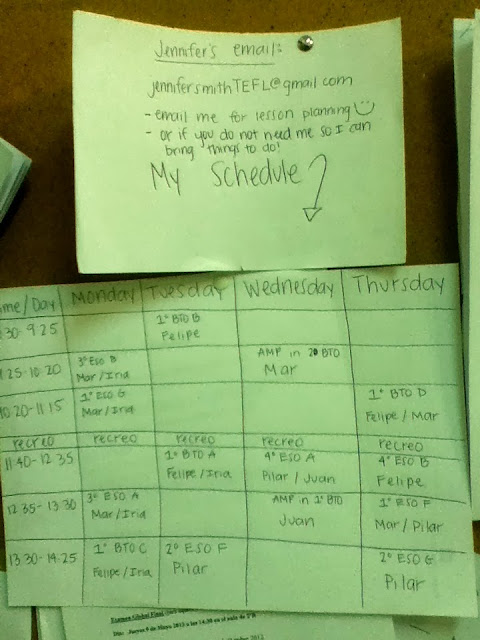 Jennifer's email:
jennifersmithTEFL@gmail.com
- email me for lesson planning
- or if you do not need me so I can
bring things to do!
My Schedule
me/Day Monday Tuesday Wednesday Thursday
:30-9:25 1º BTO B
Felipe
9:25-10:20 3º ESO B AMP in 2º BTO
Mar/Iria Mar
10:20-11:15 1º ESO G 1º BTO D
Mar/Iria Felipe/Mar
recreo recreo recreo recreo recreo
11:40-12:35 1º BTO A 4º ESO A 4º ESO B
Felipe/Iria Pilar/Juan Felipe
12:35-13:30 3º ESO A AMP in 1º BTO 1º ESO F
Mar/Iria Juan Mar/Pilar
13:30-14:25 1º BTO C 2º ESO F 2º ESO G
Felipe/Iria Pilar Pilar
Examen Global Final
Día: Jueves 9 de Mayo 2013 a las 14:30 en el aula de